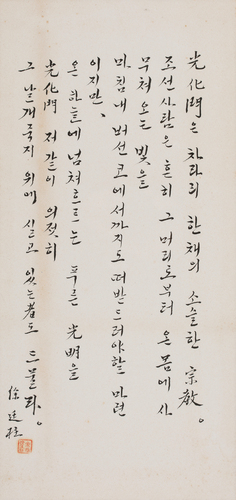 光化門은 차라리 한채의 소슬한 宗教。
조선사람은 흔히 그 머리로부터 온 몸에 사
무쳐오는 빛을
마침내 버선코에서까지도 떠받드러야할 마련
이지만、
온 하늘에 넘쳐흐르는 푸른 光明을
光化門 저같이 의젓히
그 날개죽지 위에 실고 있는者도 드물다。
徐廷柱